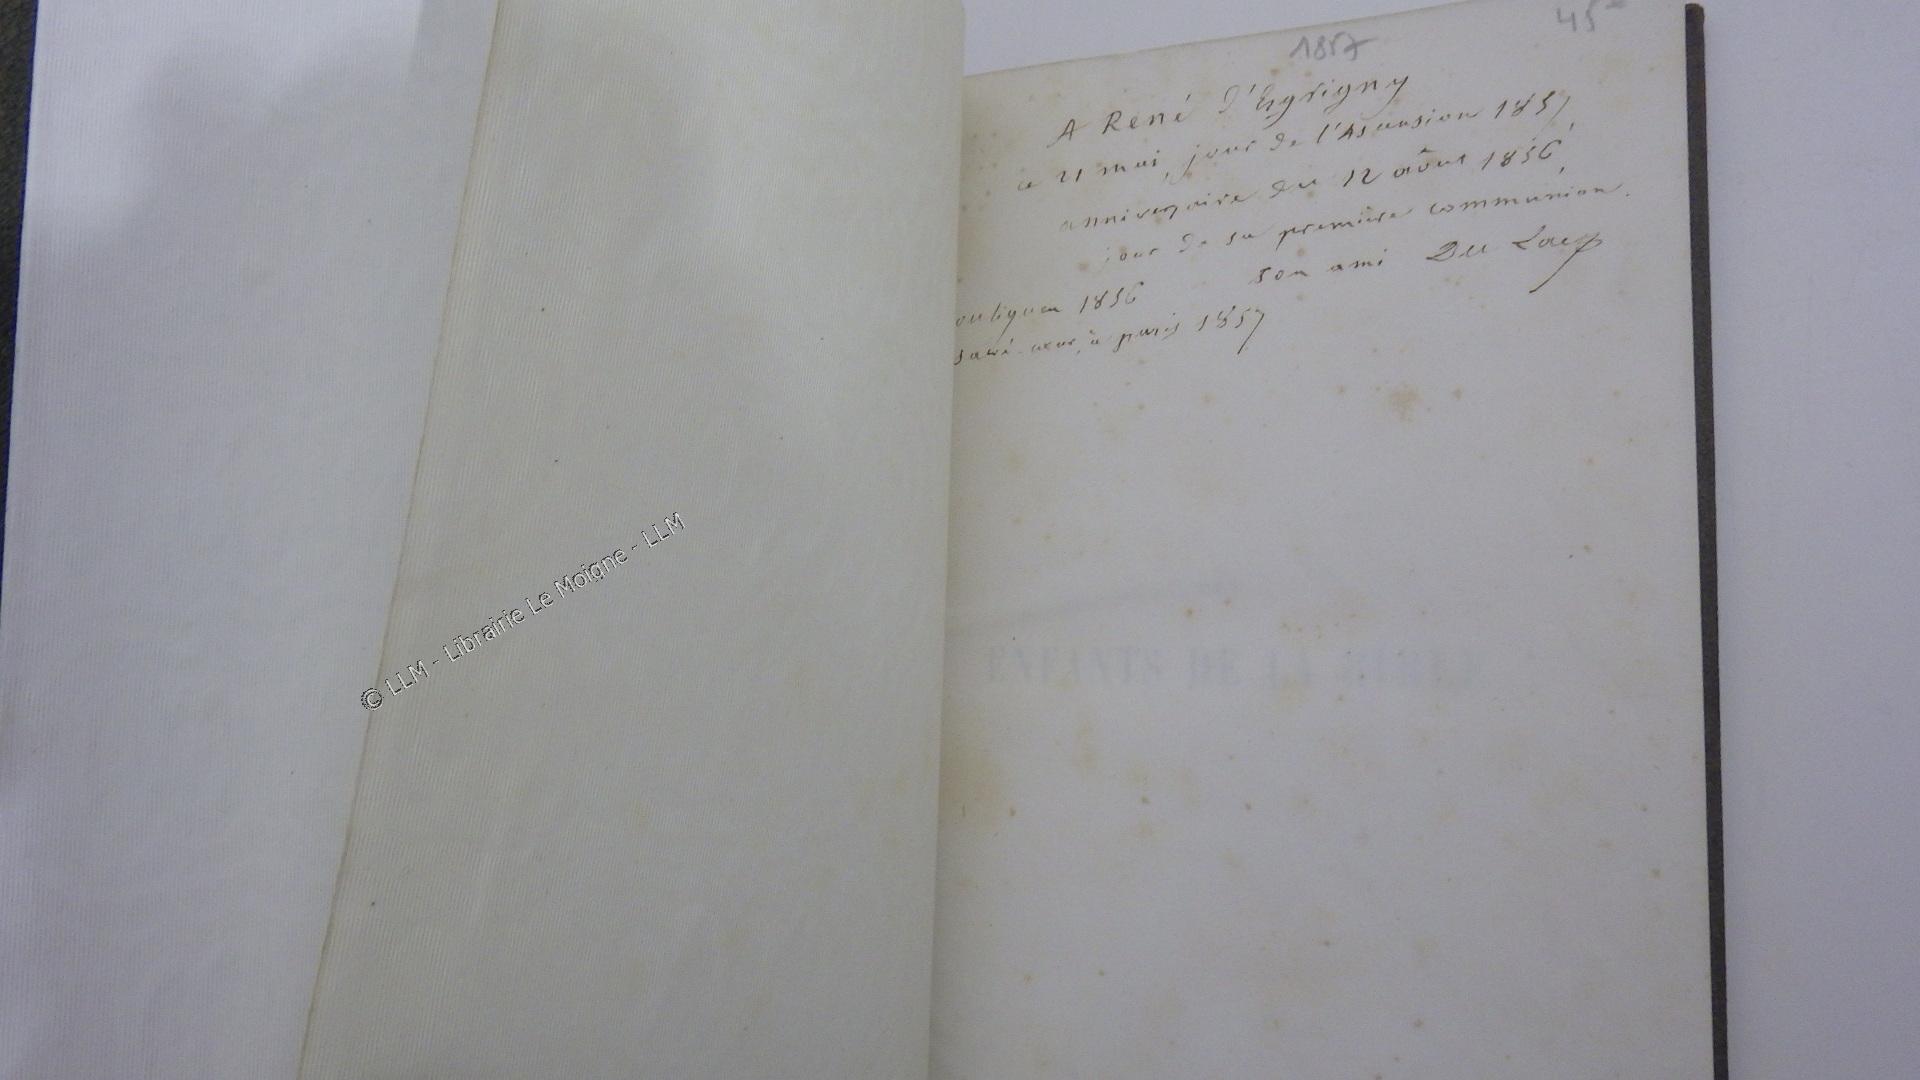 45
1857
A René d'Esgrigny
ce 21 mai, jour de l'Ascension 1857,
anniversaire du 12 août 1856,
jour de sa première communion.
son ami Du Lac
ouliguen 1856
sacré-cœur, à paris 1857
ENFANTS DE LA BIBLE
© LLM - Librairie Le Moigne - LLM